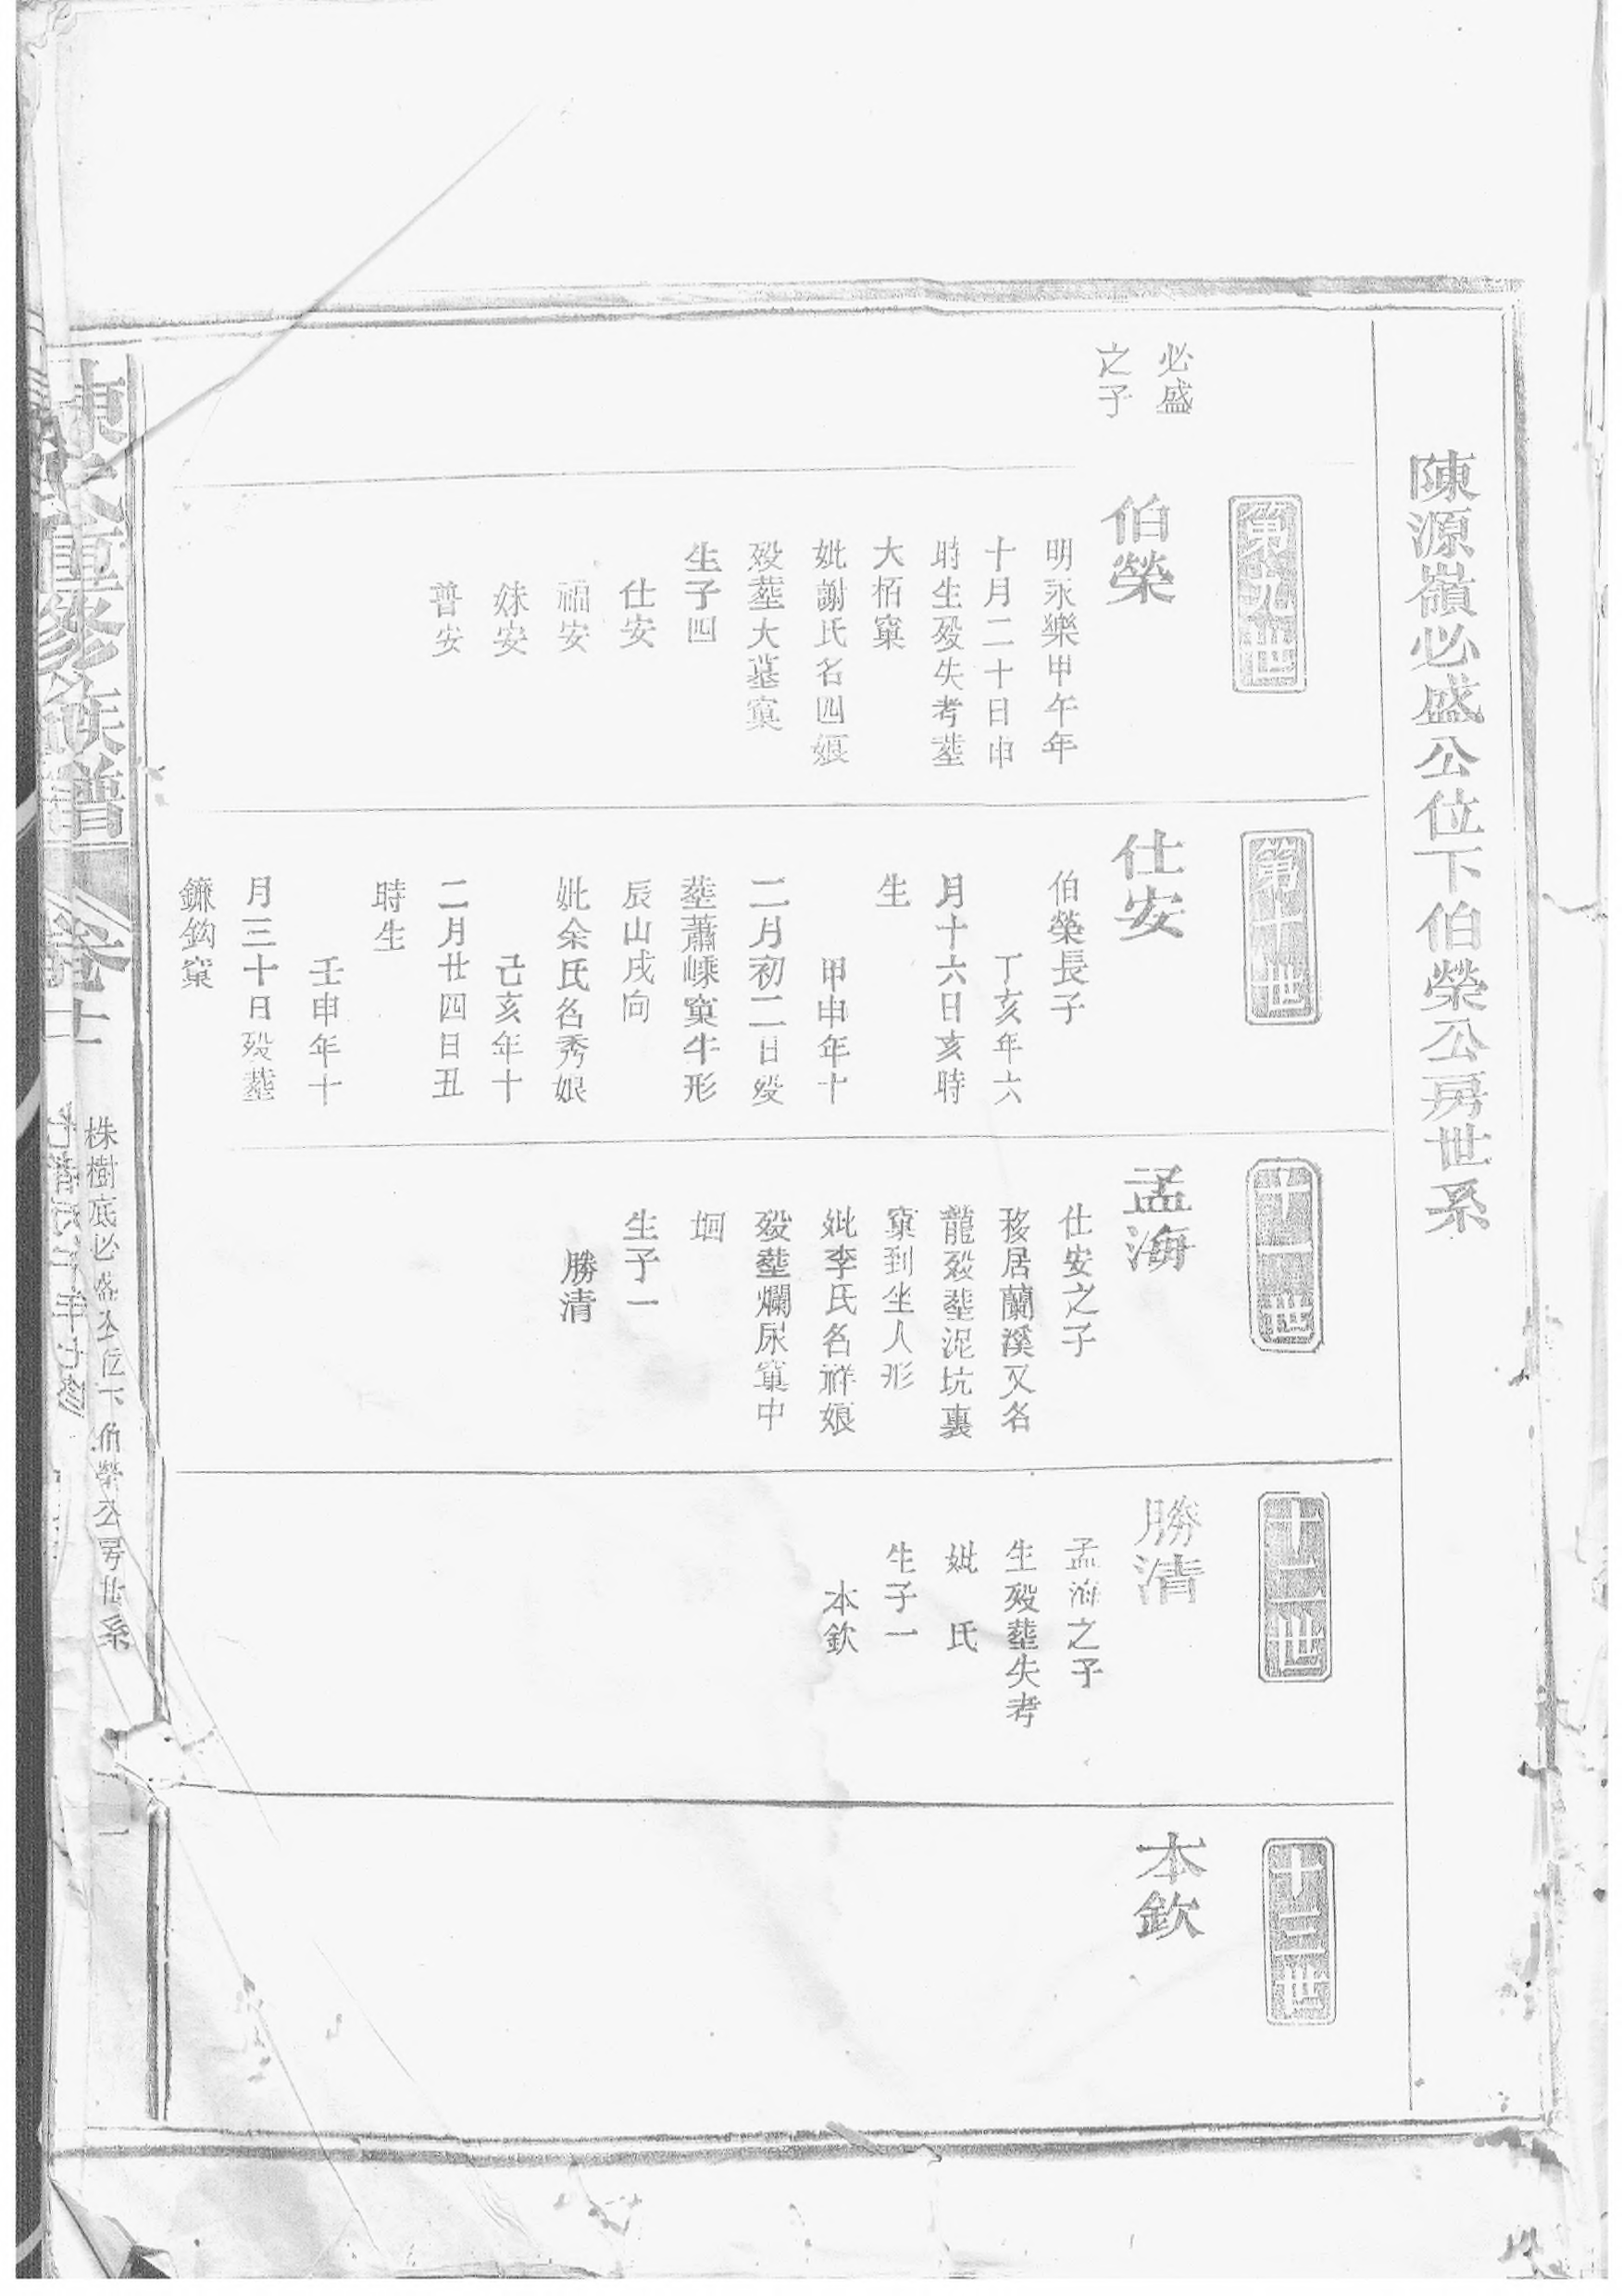 陳源嶺必盛公位下伯榮公房世系
必盛
之子
第九世
伯榮
明永樂甲午年
十月二十日申
時生殁失考塟
大栢窠
妣謝氏名四娘
殁塟大墓窠
生子四
仕安
福安
妹安
普安
第十世
仕安
伯榮長子
丁亥年六
月十六日亥時
生
甲申年十
二月初二日殁
塟蕭嵊窠牛形
辰山戌向
妣余氏名秀娘
己亥年十
二月廿四日丑
時生
壬申年十
月三十日殁塟
鐮鈎窠
十一世
孟海
仕安之子
移居蘭溪又名
龍殁塟泥坑裏
窠到坐人形
妣李氏名祥娘
殁塟爛尿窠中
𡇈
生子一
勝清
十二世
勝清
孟海之子
生殁塟失考
妣 氏
生子一
本欽
十三世
本欽
陳氏重修族譜
株樹底必盛公位下伯榮公房世系
一